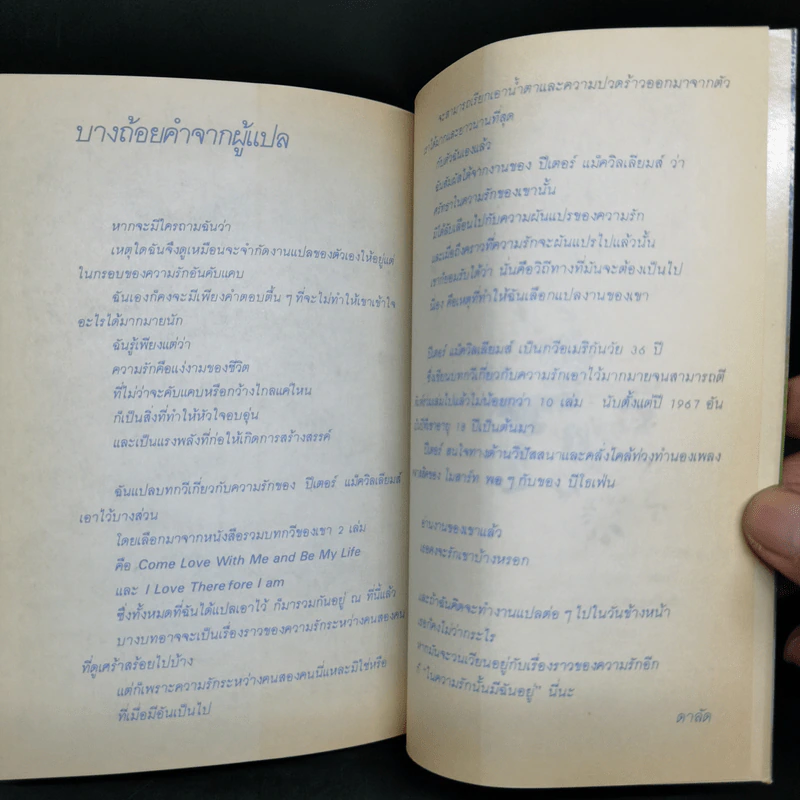 บางถ้อยคำจากผู้แปล
หากจะมีใครถามฉันว่า
เหตุใดฉันจึงดูเหมือนจะจำกัดงานแปลของตัวเองให้อยู่แต่
ในกรอบของความรักอันคับแคบ
ฉันเองก็คงจะมีเพียงคำตอบตื้น ๆ ที่จะไม่ทำให้เขาเข้าใจ
อะไรได้มากมายนัก
ฉันรู้เพียงแต่ว่า
ความรักคือแง่งามของชีวิต
ที่ไม่ว่าจะคับแคบหรือกว้างไกลแค่ไหน
ก็เป็นสิ่งที่ทำให้หัวใจอบอุ่น
และเป็นแรงพลังที่ก่อให้เกิดการสร้างสรรค์
ฉันแปลบทกวีเกี่ยวกับความรักของ ปีเตอร์ แม็ควิลเลียมส์
เอาไว้บางส่วน
โดยเลือกมาจากหนังสือรวมบทกวีของเขา 2 เล่ม
คือ Come Love With Me and Be My Life
และ I Love Therefore I am
ซึ่งทั้งหมดที่ฉันได้แปลเอาไว้ ก็มารวมกันอยู่ ณ ที่นี้แล้ว
บางบทอาจจะเป็นเรื่องราวของความรักระหว่างคนสองคน
ที่ดูเศร้าสร้อยไปบ้าง
แต่ก็เพราะความรักระหว่างคนสองคนนี่แหละมิใช่หรือ
ที่เมื่อมีอันเป็นไป
จะสามารถเรียกเอาน้ำตาและความปวดร้าวออกมาจากตัว
เราได้มากและยาวนานที่สุด
กับตัวฉันเองแล้ว
ฉันสัมผัสได้จากงานของ ปีเตอร์ แม็ควิลเลียมส์ ว่า
ศรัทธาในความรักของเขานั้น
มิได้ลับเลือนไปกับความผันแปรของความรัก
และเมื่อถึงคราวที่ความรักจะผันแปรไปแล้วนั้น
เขาก็ยอมรับได้ว่า นั่นคือวิถีทางที่มันจะต้องเป็นไป
นี่เอง คือเหตุที่ทำให้ฉันเลือกแปลงานของเขา
ปีเตอร์ แม็ควิลเลียมส์ เป็นกวีอเมริกันวัย 36 ปี
ซึ่งเขียนบทกวีเกี่ยวกับความรักเอาไว้มากมายจนสามารถตี
พิมพ์รวมเล่มไปแล้วไม่น้อยกว่า 10 เล่ม นับตั้งแต่ปี 1967 อัน
เป็นปีที่เขาอายุ 18 ปีเป็นต้นมา
ปีเตอร์ สนใจทางด้านวิปัสสนาและคลั่งไคล้ท่วงทำนองเพลง
คลาสิคของ โมสาร์ท พอ ๆ กับของ บีโธเฟ่น
อ่านงานของเขาแล้ว
เธอคงจะรักเขาบ้างหรอก
และถ้าฉันคิดจะทำงานแปลต่อ ๆ ไปในวันข้างหน้า
เธอก็คงไม่ว่ากระไร
หากมันจะวนเวียนอยู่กับเรื่องราวของความรักอีก
ก็ "ในความรักนั้นมีฉันอยู่" นี่นะ
ดาลัด